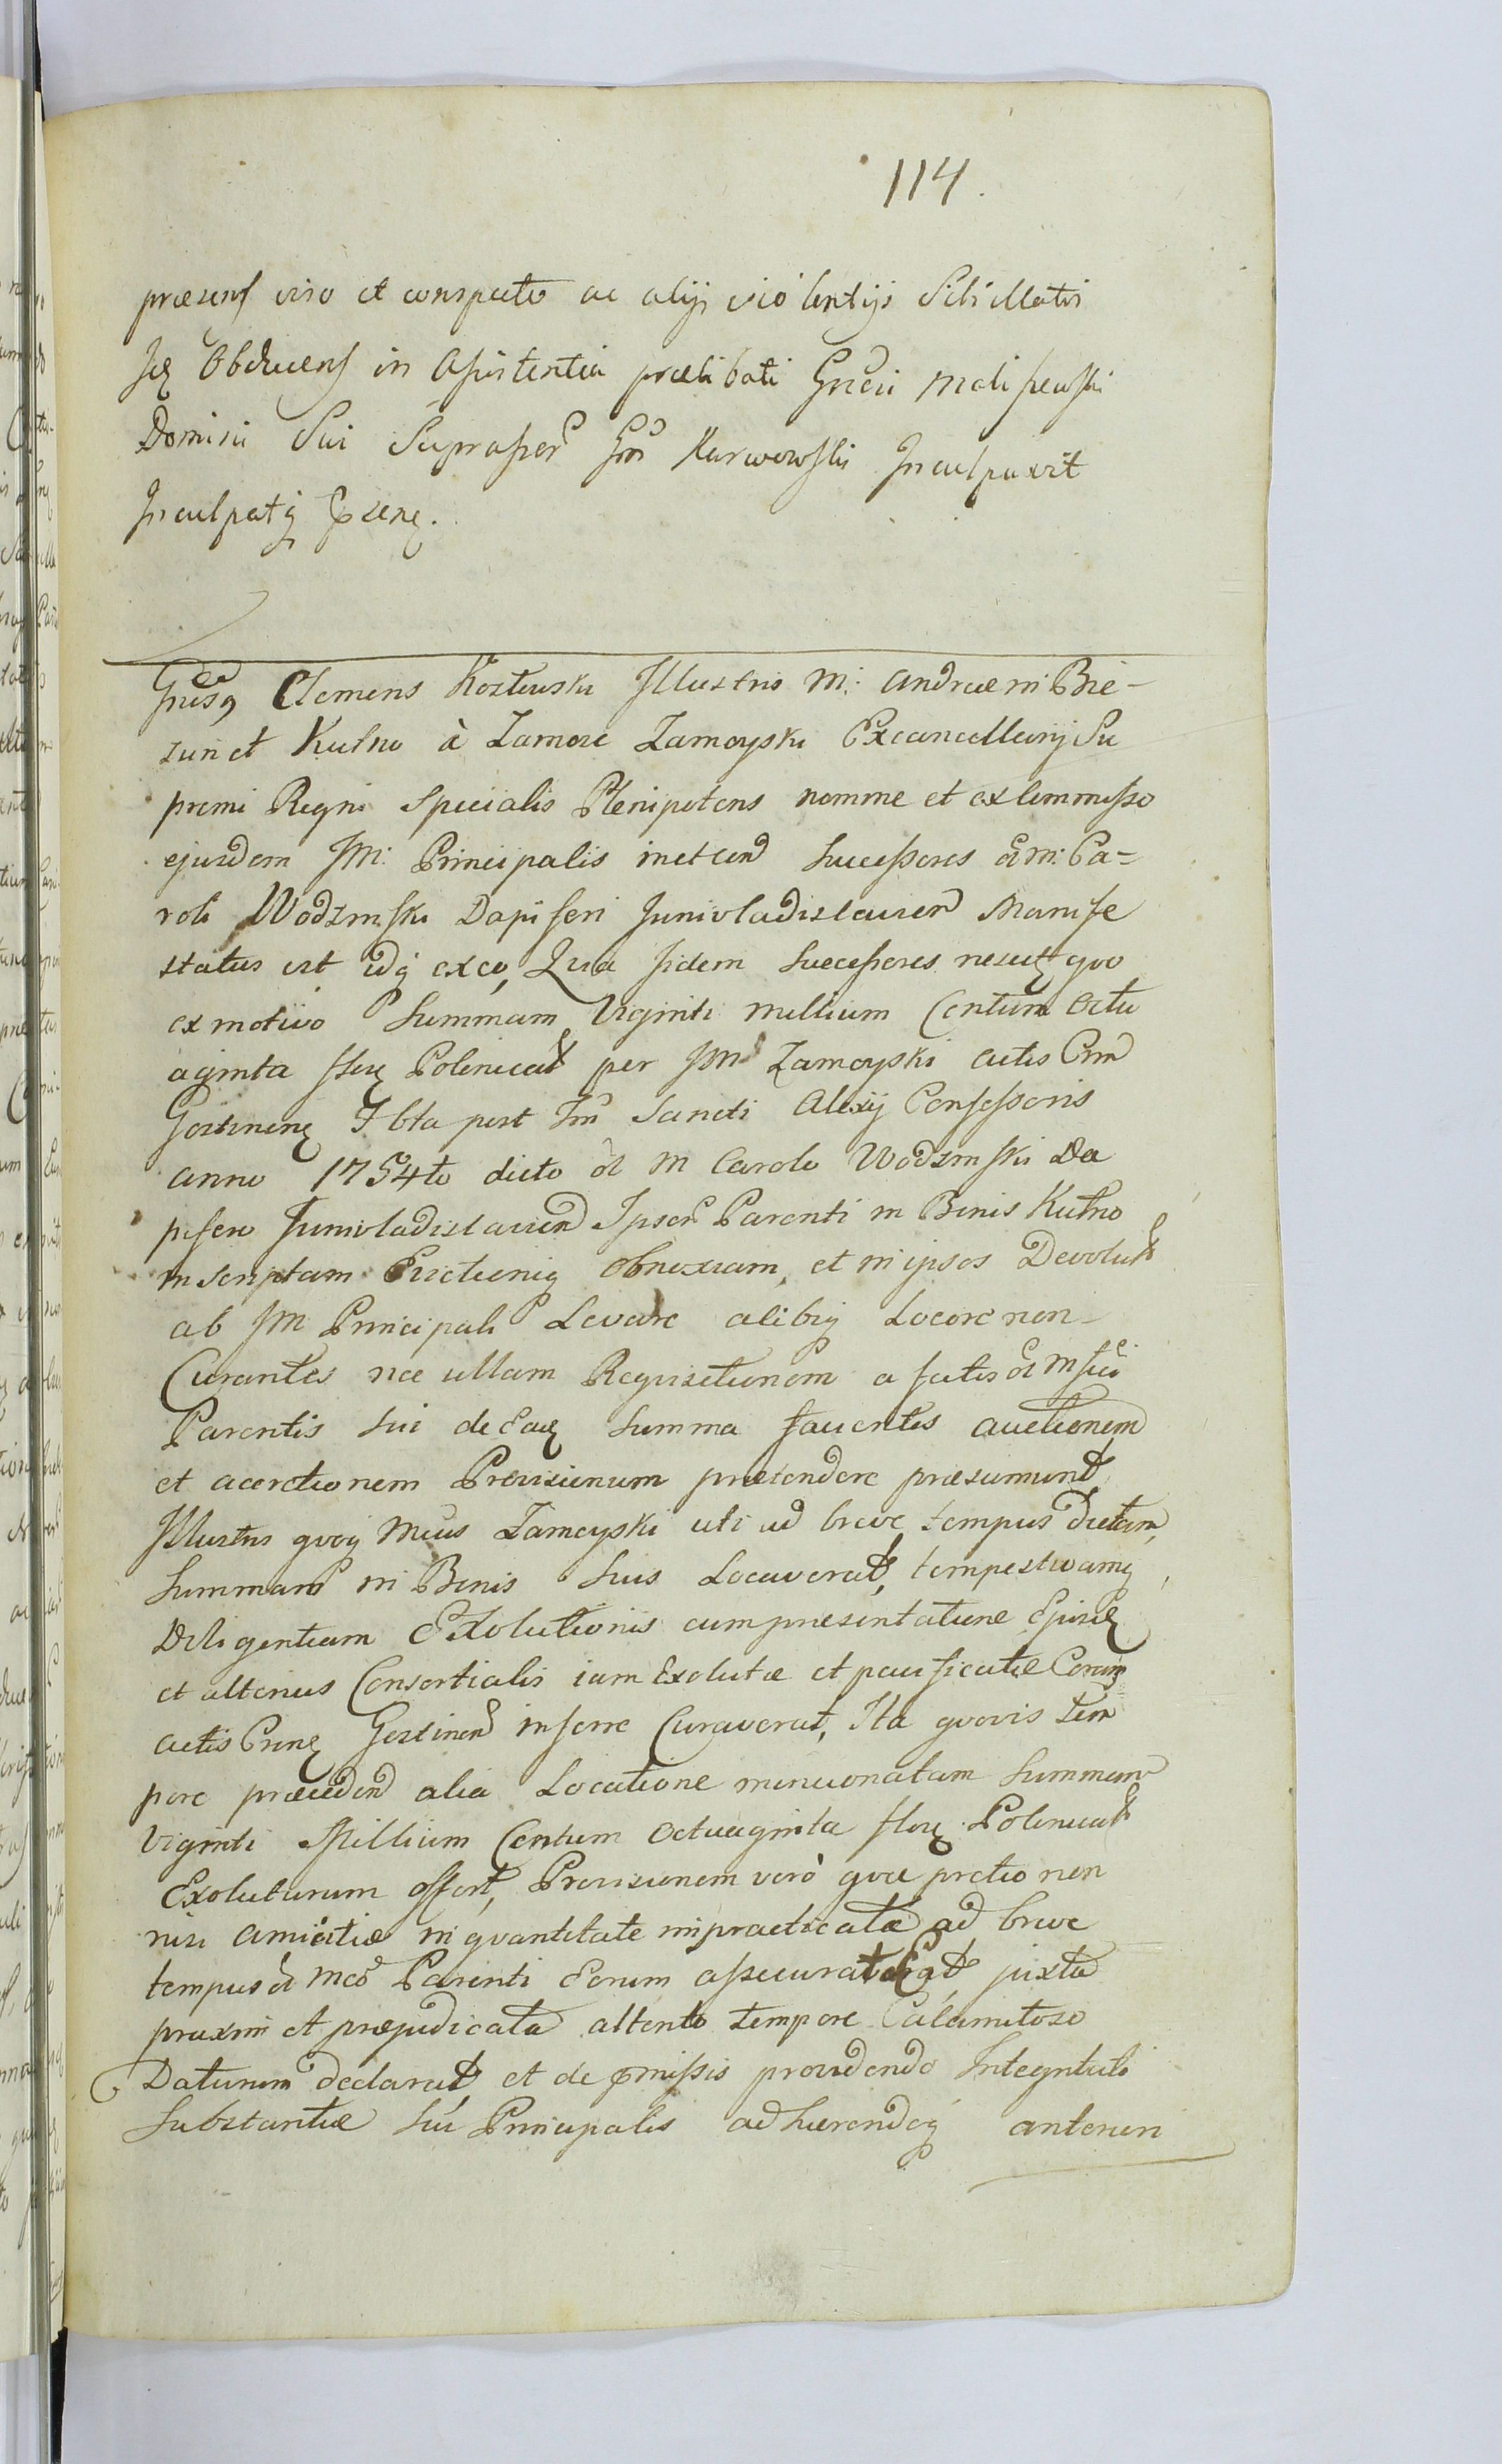 114.
præsens viso et conspecto ac alijs violentijs Sibi illatis
se Obducens in Assistentia prælibati Grosi
Domini Sui Suprascr Gro Karwowski Inculpavit
Inculpatq
Grosus Clemens Kostewski Illustris M: Andreæ in Bie-
zun et Kutno à Zamość Zamoyski Excancellarij Su
premi Regni Specialis Plenipotens nomine et ex Commisso
ejusdem JM: Principalis in et cend Successores M: Ca-
roli Wodzinski Dapiferi Junivladislavien Manife
status est idq ex eo, Quia fidem Successores nescitz quo
ex motivo Summam Viginti millium Centum Octu
aginta flor Polonical per JM Zamoyski actis
Gostinen Sbbto post Sancti Alexij Confessoris
anno 1754to dicto M Carolo Wodzinski Da
pifero Juniwladislavien Ipsor Parenti in Bonis Kutno
inscriptam Evictioniq Obnoxiam, et in ipsos Devolut
ab JM Principali Levare alibiq Locare non
Curantes nec ullam Requisitionem a fatis M
Parentis sui de Eadz Summa facientes auctionem
et accretionem Provisionum prætendere præsumunt
Illustris quoq Mcus Zamoyski uti ad breve tempus dictam
Summam in Bonis Suis Locaverat, tempestivamq
Diligentiam Exolutionis cum præsentatione Ejusdz
et alterius Consortialis iam Exolutæ et pacificatæ Coram
actis Gostinen inferre Curaverat, Ita quovis tem
pore præceden alia Locatione mencionatam Summam
Viginti Millium Centum Octuaginta flor Polonical
Exoluturum offert, Provisionem verò quæ pretio non
nisi amicitiæ in quantitate impracticata ad breve
tempus Mco Parenti Eorum assecurat Erat, juxta
praxim et præjudicata attento tempore Calamitoso
Daturum declarat, et de præmissis providendo Integritati
Substantiæ sui Principalis adhærendoq anteriori